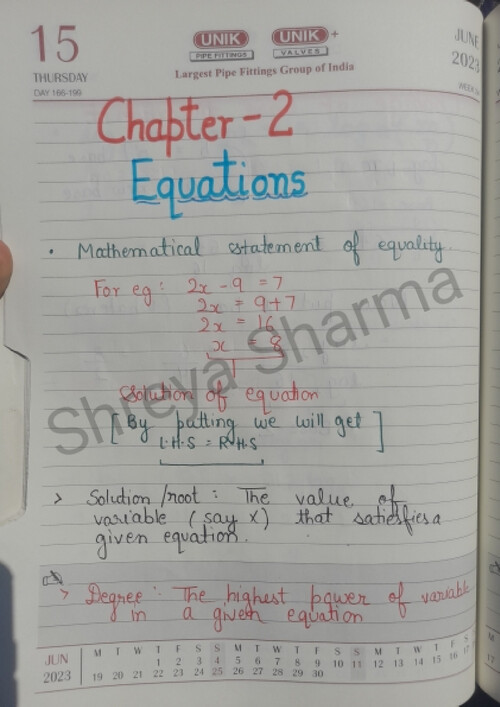 15
THURSDAY
DAY 166-199
UNIK
PIPE FITTINGS
UNIK +
VALVES
Largest Pipe Fittings Group of India
JUNE
2023
WEEK
Chapter - 2
Equations
• Mathematical statement of equality.
For eg: 2x - 9 = 7
2x = 9+7
2x = 16
x = 8
Solution of equation
[By putting we will get]
L.H.S = R.H.S
> Solution/root : The value of
variable (say x) that satisfies a
given equation.
> Degree : The highest power of variable
in a given equation
Shreya Sharma
JUN
2023
M T W T F S S M T W T F S S M T W T F S
1 2 3 4 5 6 7 8 9 10 11 12 13 14 15 16 17
19 20 21 22 23 24 25 26 27 28 29 30